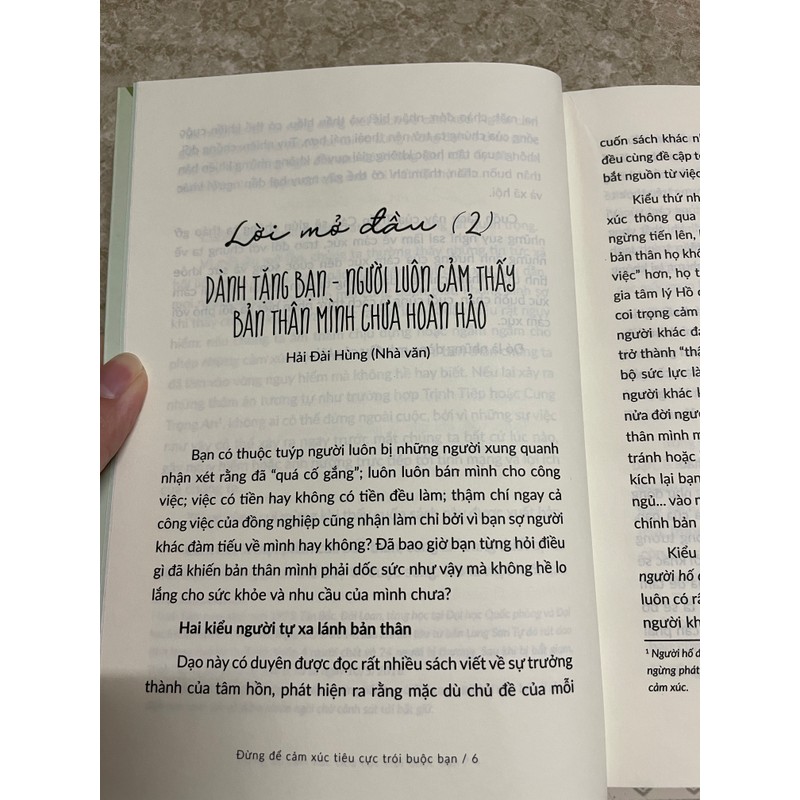 Lời mở đầu (2)
DÀNH TẶNG BẠN - NGƯỜI LUÔN CẢM THẤY
BẢN THÂN MÌNH CHƯA HOÀN HẢO
Hải Đài Hùng (Nhà văn)
Bạn có thuộc tuýp người luôn bị những người xung quanh
nhận xét rằng đã “quá cố gắng”; luôn luôn bán mình cho công
việc; việc có tiền hay không có tiền đều làm; thậm chí ngay cả
công việc của đồng nghiệp cũng nhận làm chỉ bởi vì bạn sợ người
khác đàm tiếu về mình hay không? Đã bao giờ bạn từng hỏi điều
gì đã khiến bản thân mình phải dốc sức như vậy mà không hề lo
lắng cho sức khỏe và nhu cầu của mình chưa?
Hai kiểu người tự xa lánh bản thân
Dạo này có duyên được đọc rất nhiều sách viết về sự trưởng
thành của tâm hồn, phát hiện ra rằng mặc dù chủ đề của mỗi
Đừng để cảm xúc tiêu cực trói buộc bạn / 6
cuốn sách khác
đều cùng đề cập
bắt nguồn từ việc
Kiểu thứ
xúc thông qua
ngừng tiến lên,
bản thân họ không
việc” hơn, họ
gia tâm lý Hồ
coi trọng cảm
người khác
trở thành
bộ sức lực
người khác
nửa đời
thân mình
tránh hoặc
kích lại bạn
ngủ... vào
chính bản
Kiểu
người hố
luôn có
người
¹ Người hố
ngừng phát
cảm xúc.